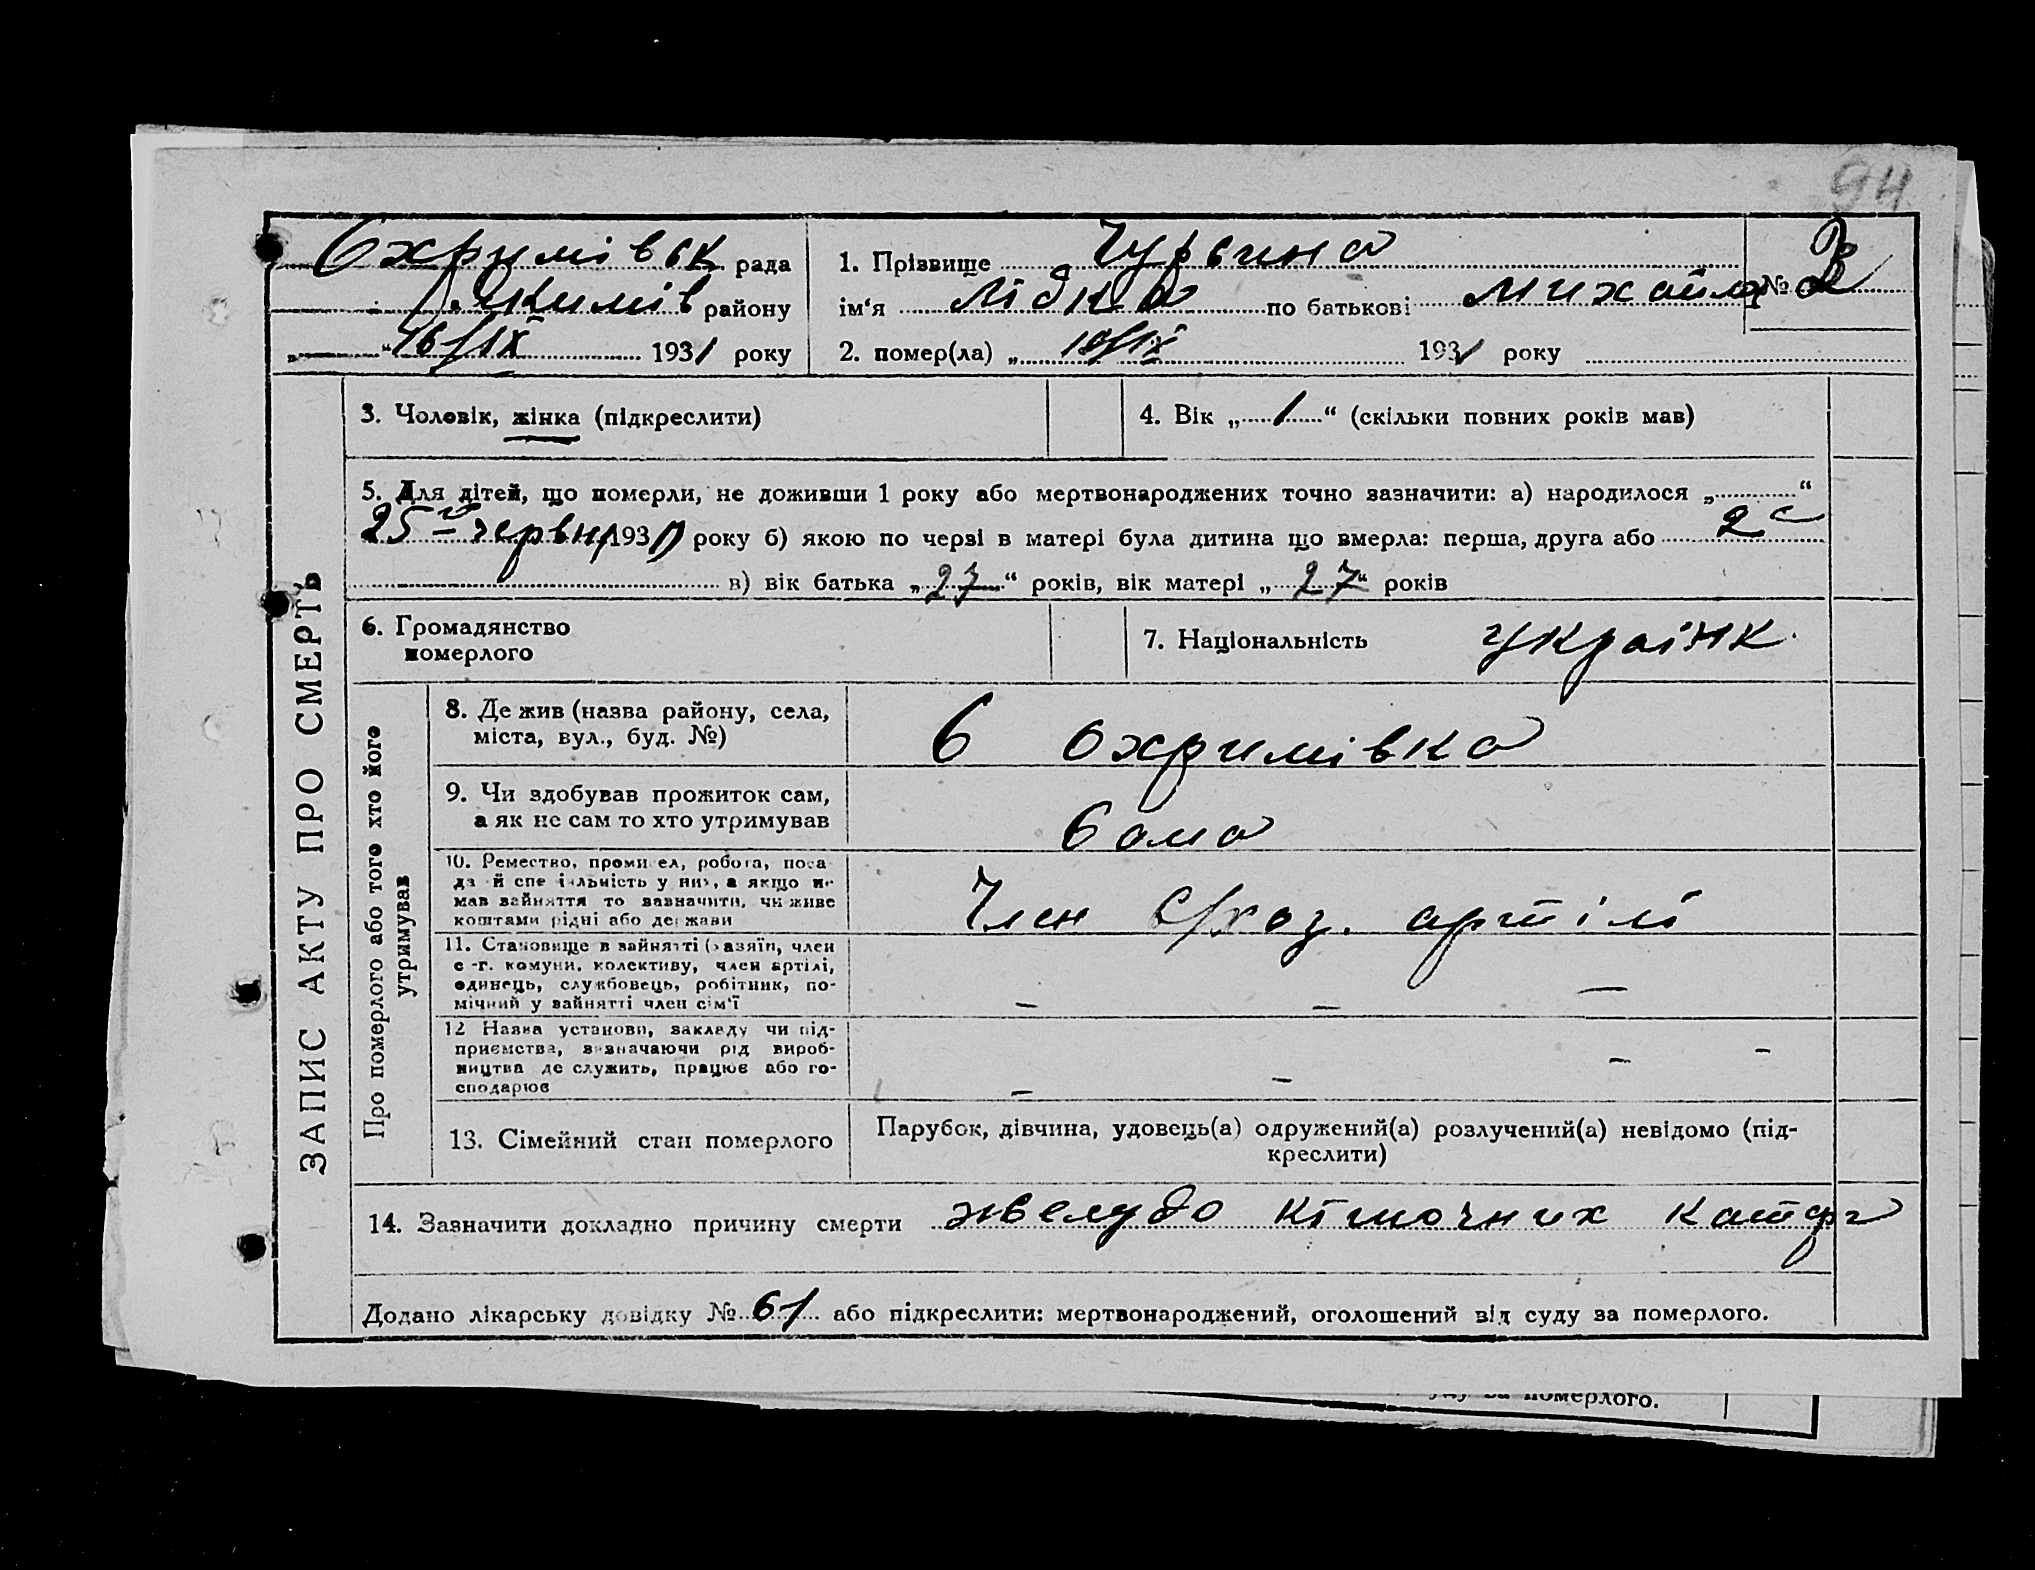 94
Охримівськ рада
Якимів району
„ “ 16/IX 1931 року
1. Прізвище
ім‘я Лідка по батькові Михайло
№
2. помер(ла) „ 1931 року
ЗАПИС АКТУ ПРО СМЕРТЬ
3. Чоловік, жінка (підкреслити)
4. Вік „ 1 “ (скільки повних років мав)
5. Для дітей, що померли, не доживши 1 року або мертвонароджених точно зазначити: а) народилося „ “
25 червня 1930 року б) якою по черзі в матері була дитина що вмерла: перша, друга або 2
в) вік батька „ 27 “ років, вік матері „ 27 “ років
6. Громадянство
померлого
7. Національність українк
Про померлого або того хто його
утримував
8. Де жив (назва району, села,
міста, вул., буд. №)
С Охримівка
9. Чи здобував прожиток сам,
а як не сам то хто утримував
Сама
10. Ремество, промисел, робота, поса
да й спеціяльність у них, а якщо не
мав зайняття то зазначити, чи живе
коштами рідні або держави
Член с/хоз. артілі
11. Становище в зайнятті (хазяїн, член
с-г. комуни, колективу, член артілі,
одинець, службовець, робітник, по-
мічний у зайнятті член сім'ї
— — —
12 Назва установи, закладу чи під-
приємства, зазначаючи рід вироб-
ництва де служить, працює або го-
сподарює
— — — —
13. Сімейний стан померлого
Парубок, дівчина, удовець(а) одружений(а) розлучений(а) невідомо (під-
креслити)
14. Зазначити докладно причину смерти жвелудо кішочних
Додано лікарську довідку № 61 або підкреслити: мертвонароджений, оголошений від суду за померлого.
за померлого.